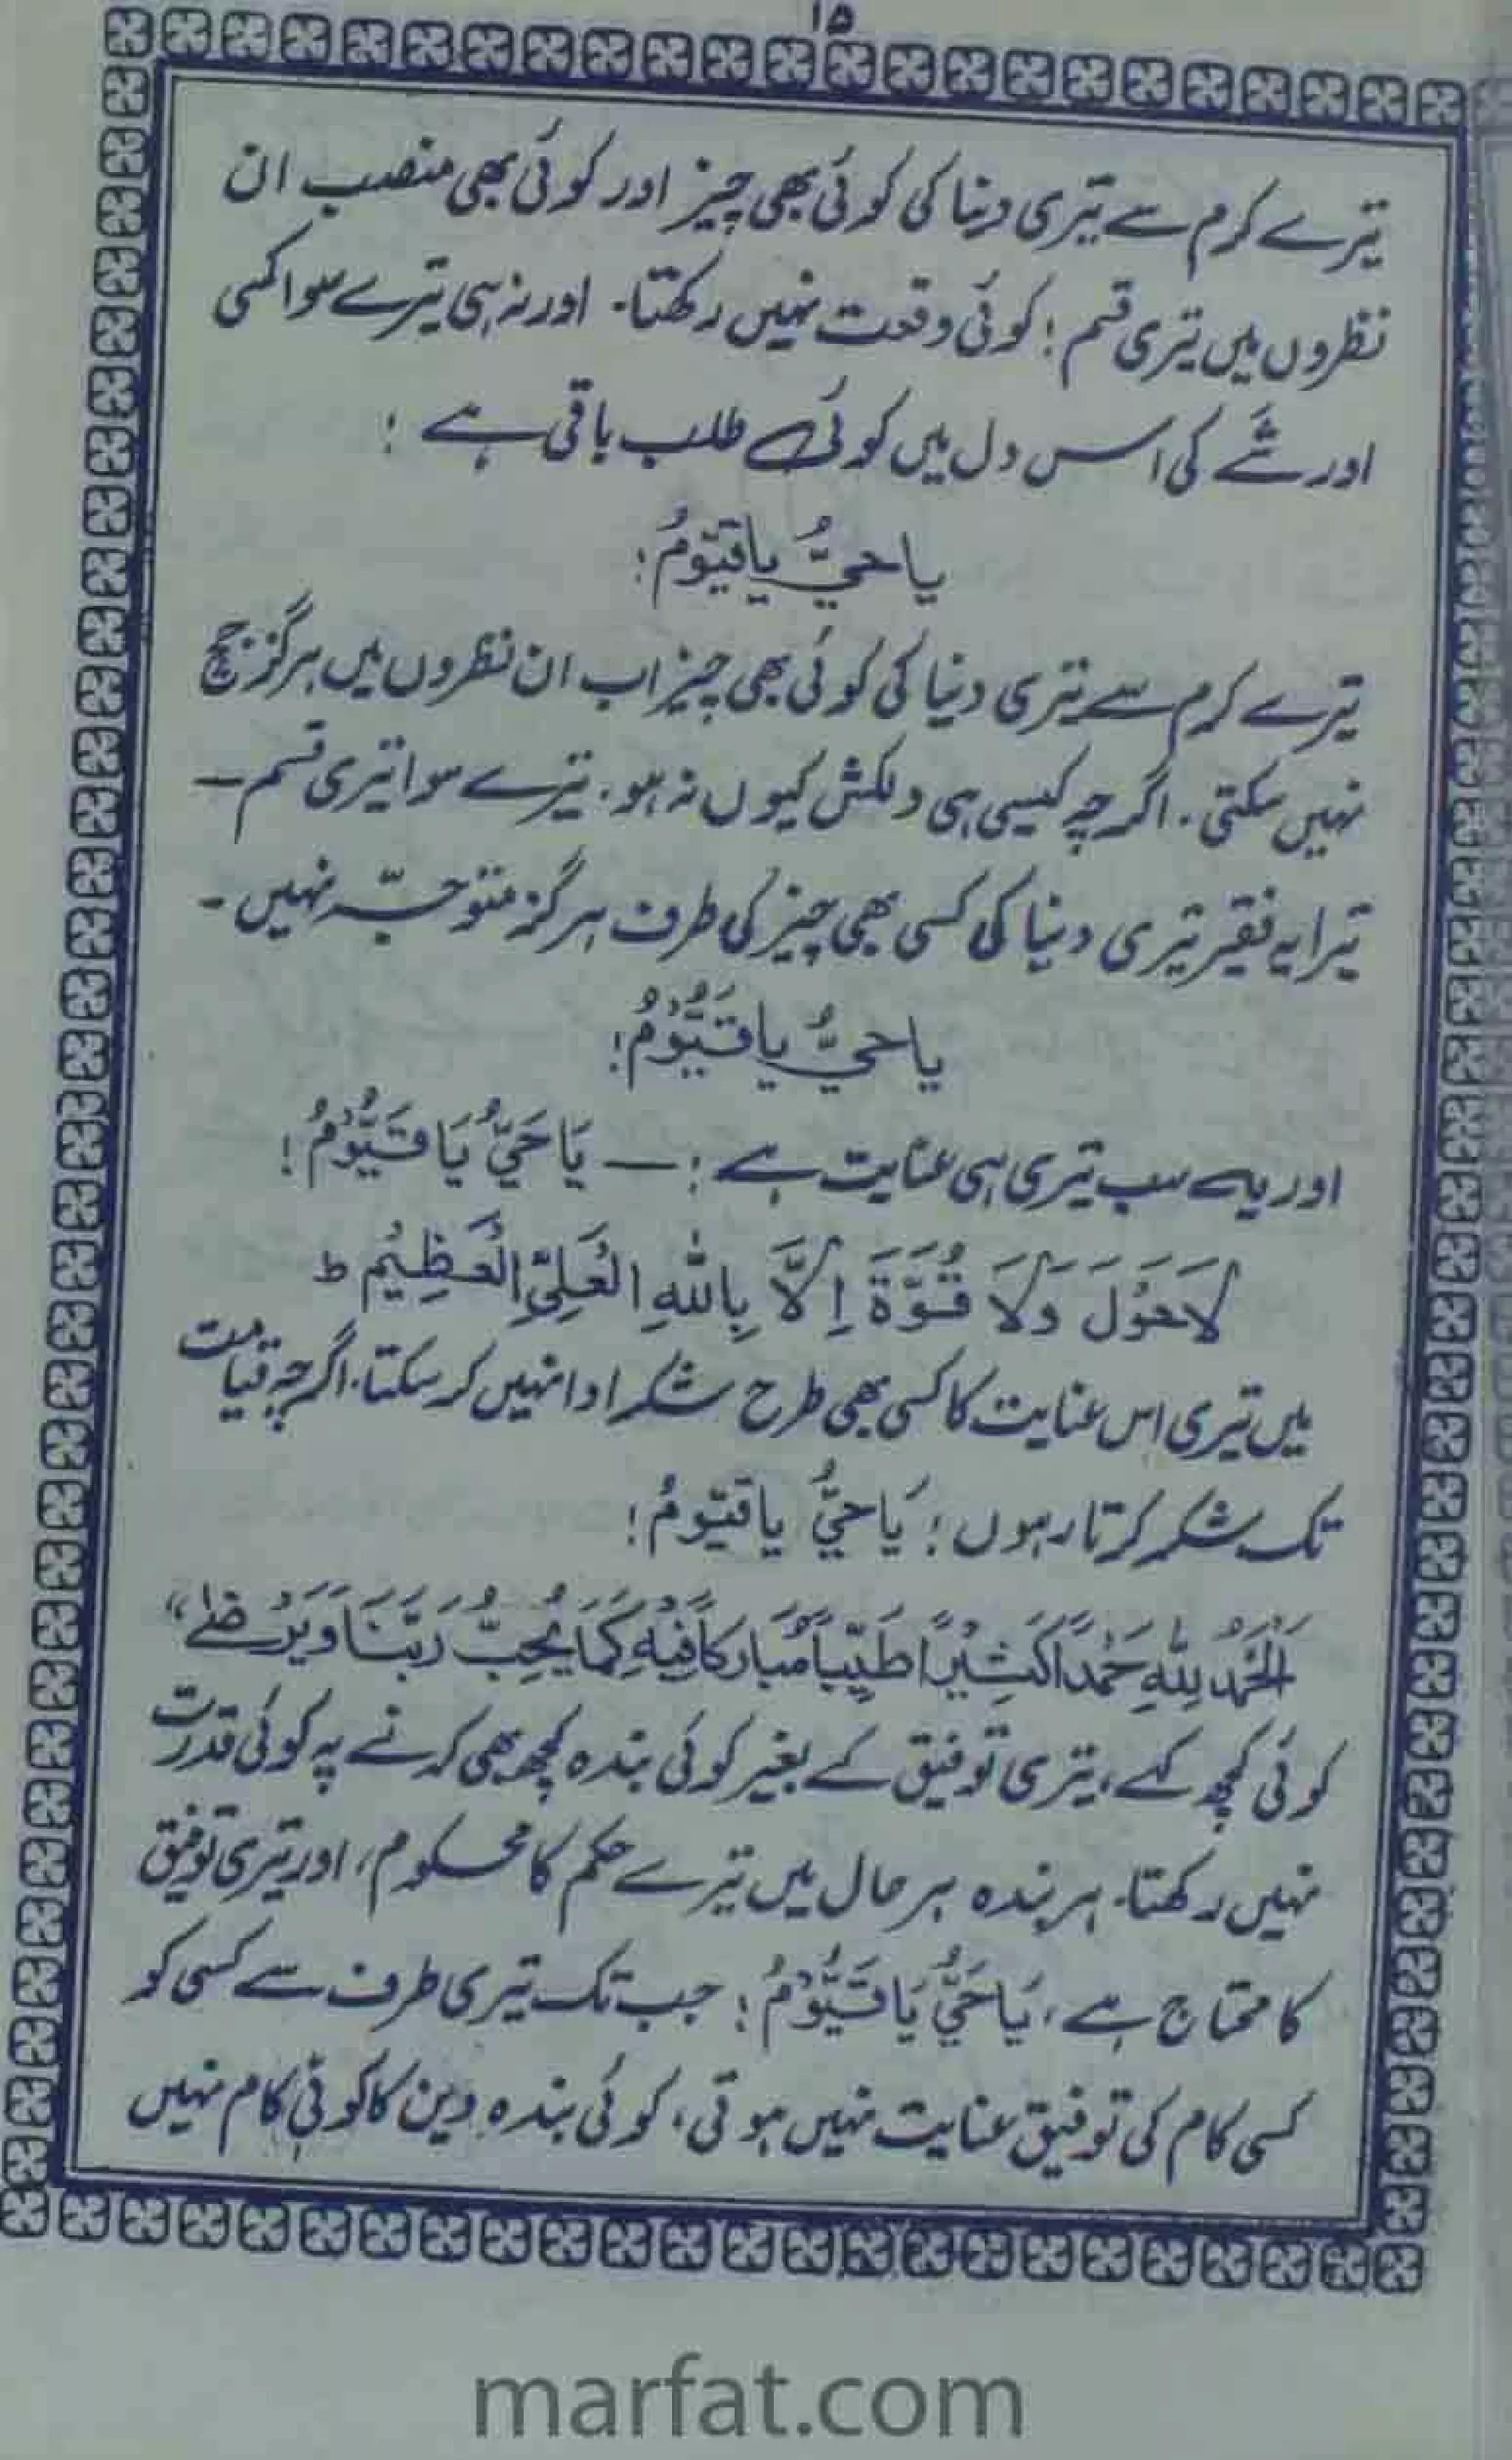 ۱۵
تیرے کرم سے تیری دنیا کی کوئی بھی چیز اور کوئی بھی منصب ان
نظروں میں تیری قسم ! کوئی وقعت نہیں رکھتا۔ اور نہ ہی تیرے سوا کسی
اور شَے کی اس دل میں کوئی طلب باقی ہے !
یا حیُّ یا قیّومُ !
تیرے کرم سے تیری دنیا کی کوئی بھی چیز اب ان نظروں میں ہرگز جچ
نہیں سکتی ۔ اگرچہ کیسی ہی دلکش کیوں نہ ہو ۔ تیرے سوا تیری قسم —
تیرا یہ فقیر تیری دنیا کی کسی بھی چیز کی طرف ہرگز متوجّہ نہیں ۔
یا حیُّ یا قَیُّوْمُ !
اور یہ سب تیری ہی عنایت ہے ! — یَا حَیُّ یَا قَیُّوْمُ !
لَا حَوْلَ وَلَا قُوَّةَ اِلَّا بِاللّٰهِ الْعَلِیِّ الْعَظِیْمِ ط
میں تیری اس عنایت کا کسی بھی طرح شکر ادا نہیں کر سکتا۔ اگرچہ قیامت
تک شکر کرتا رہوں ! یَا حیُّ یا قیّومُ !
اَلْحَمْدُ لِلّٰهِ حَمْدًا کَثِیْرًا طَیِّبًا مُّبَارَکًا فِیْهِ کَمَا یُحِبُّ رَبُّنَا وَیَرْضٰے ”
کوئی کچھ کہے ، تیری توفیق کے بغیر کوئی بندہ کچھ بھی کرنے پہ کوئی قدرت
نہیں رکھتا۔ ہر بندہ ہر حال میں تیرے حکم کا محکوم ، اور تیری توفیق
کا محتاج ہے ، یَا حَیُّ یَا قَیُّوْمُ ! جب تک تیری طرف سے کسی کو
کسی کام کی توفیق عنایت نہیں ہوتی ، کوئی بندہ دین کا کوئی کام نہیں
marfat.com